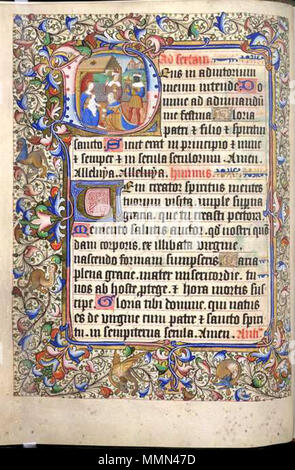 Ad sextam
Deus in adiutorium
meum intende. Do
mine ad adiuvandum
me festina. Gloria
patri & filio & spiritui
sancto. Sicut erat in principio & nunc
& semper & in secula seculorum. Amen.
Alleluya. Alleluya. hymnus.
Veni creator spiritus mentes
tuorum visita, imple superna
gracia, que tu creasti pectora.
Memento salutis auctor, qd nostri quo
dam corporis, ex illibata virgine,
nascendo formam sumpseris. Maria
plena gracie, mater misericordie, tu
nos ab hoste, ptege, & hora mortis sus
cipe. Gloria tibi domine, qui natus
es de virgine cum patre & sancto spiri
tu, in sempiterna secula. Amen. Ant.
alamy
MMN47D